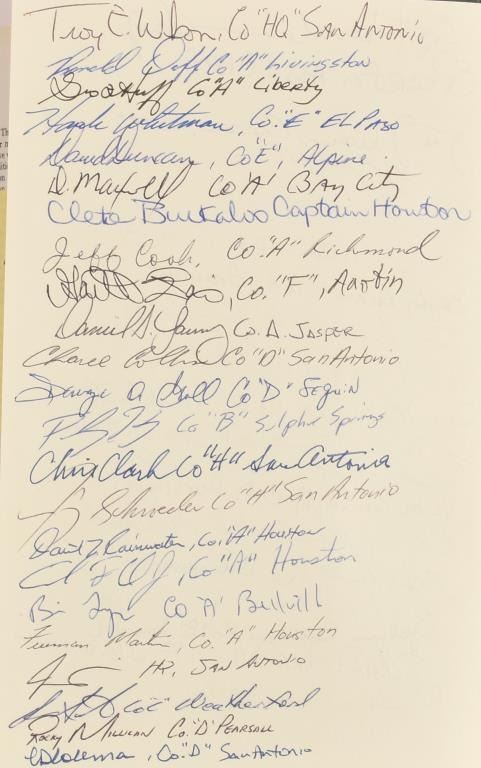 Troy E. Wilson, Co "HQ" San Antonio
Ronald Duff Co "A" Livingston
Huff Co "A" Liberty
Hank Whitman, Co. "E" El Paso
David Duncan, Co "E", Alpine.
D. Maxwell Co 'A' Bay City
Clete Buckaloo Captain Houston
Jeff Cook, Co. "A" Richmond
Co. "F", Austin
Daniel S. Young Co. A. Jasper
Chance Collins Co "D" San Antonio
A Co "D" Seguin
Co "B" Sulphur Springs
Chris Clark Co "H" San Antonio
Schroeder Co "H" San Antonio
David Z Rainwater, Co. "A" Houston
, Co "A" Houston
Co 'A' Bellvill
Freeman Martin, Co. "A" Houston
HQ, San Antonio
Co "C" Weatherford
Rocky N Millican Co. "D" Pearsall
, Co. "D" San Antonio